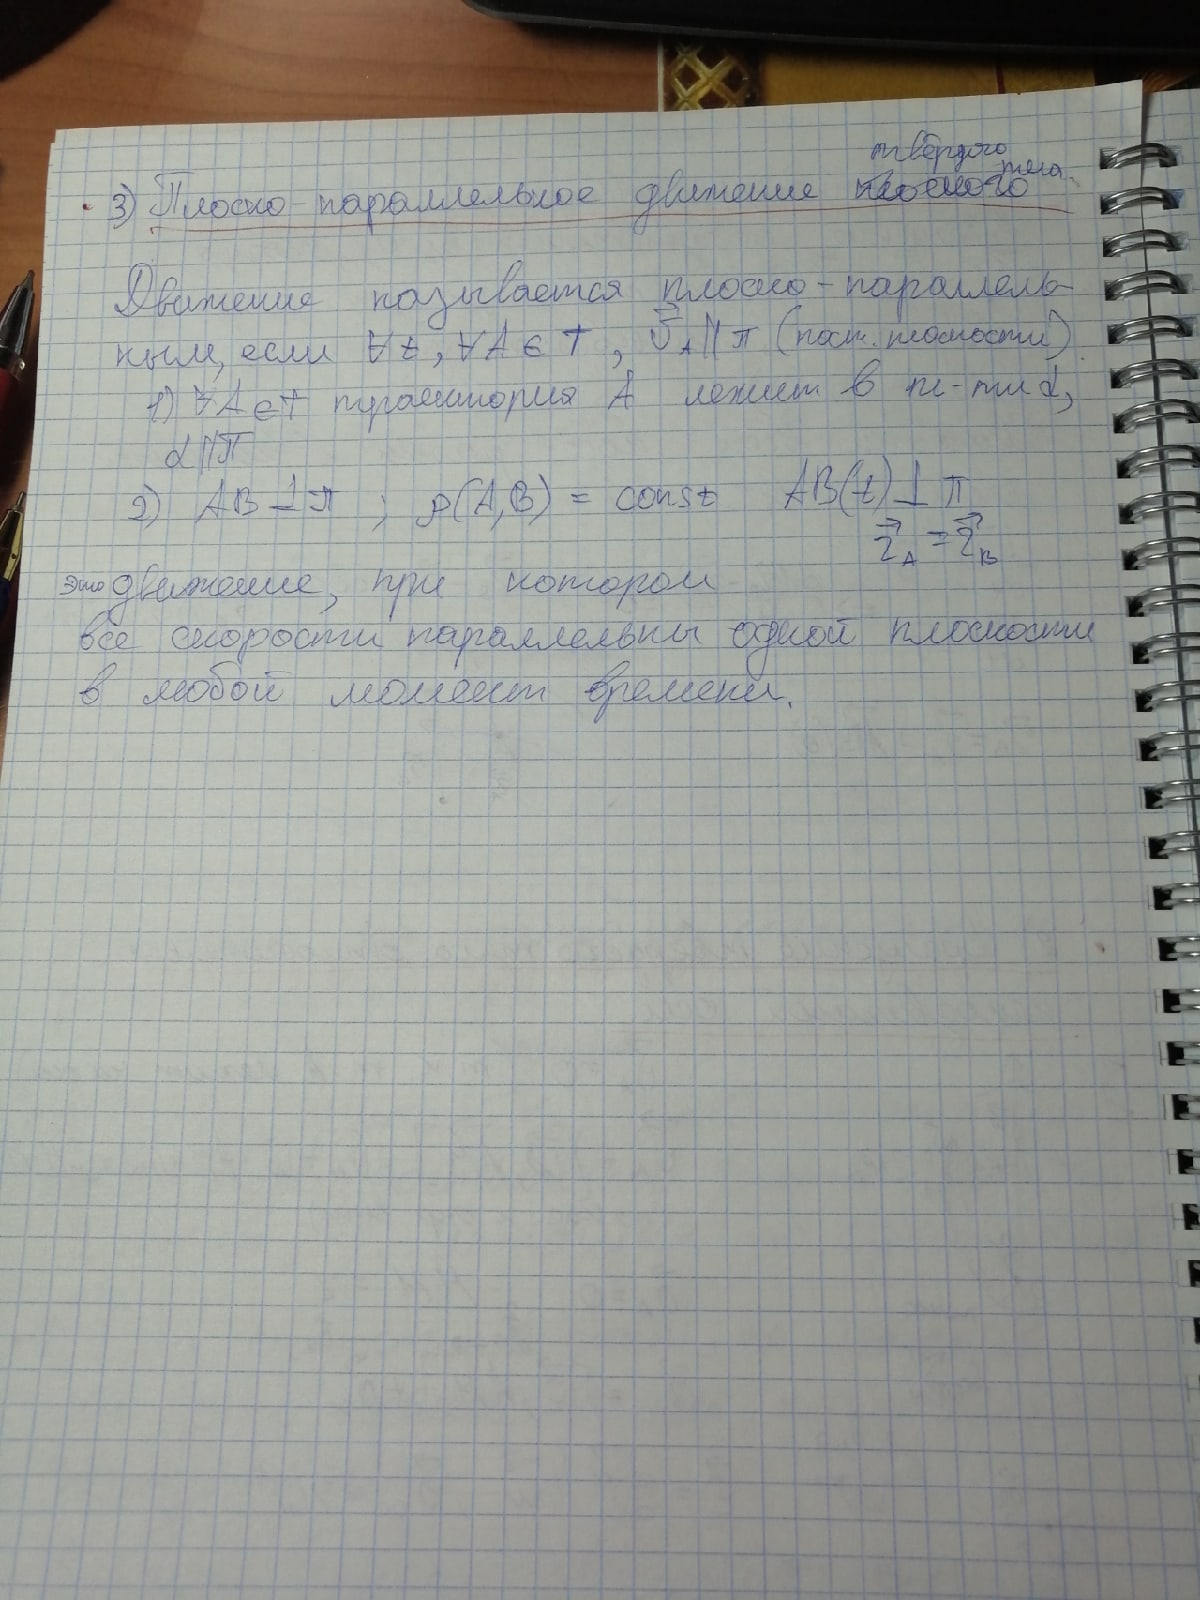 твёрдого
3) Плоско-параллельное движение плоского тела.
Движение называется плоско-параллель-
ным, если ∀t, ∀A ∈ T, v⃗_A ∥ π (пост. плоскости)
1) ∀A ∈ T траектория A лежит в пл-ти α,
α ∥ π
2) AB ⊥ π ; ρ(A,B) = const AB(t) ⊥ π
r⃗_A = r⃗_B
это движение, при котором
все скорости параллельны одной плоскости
в любой момент времени.